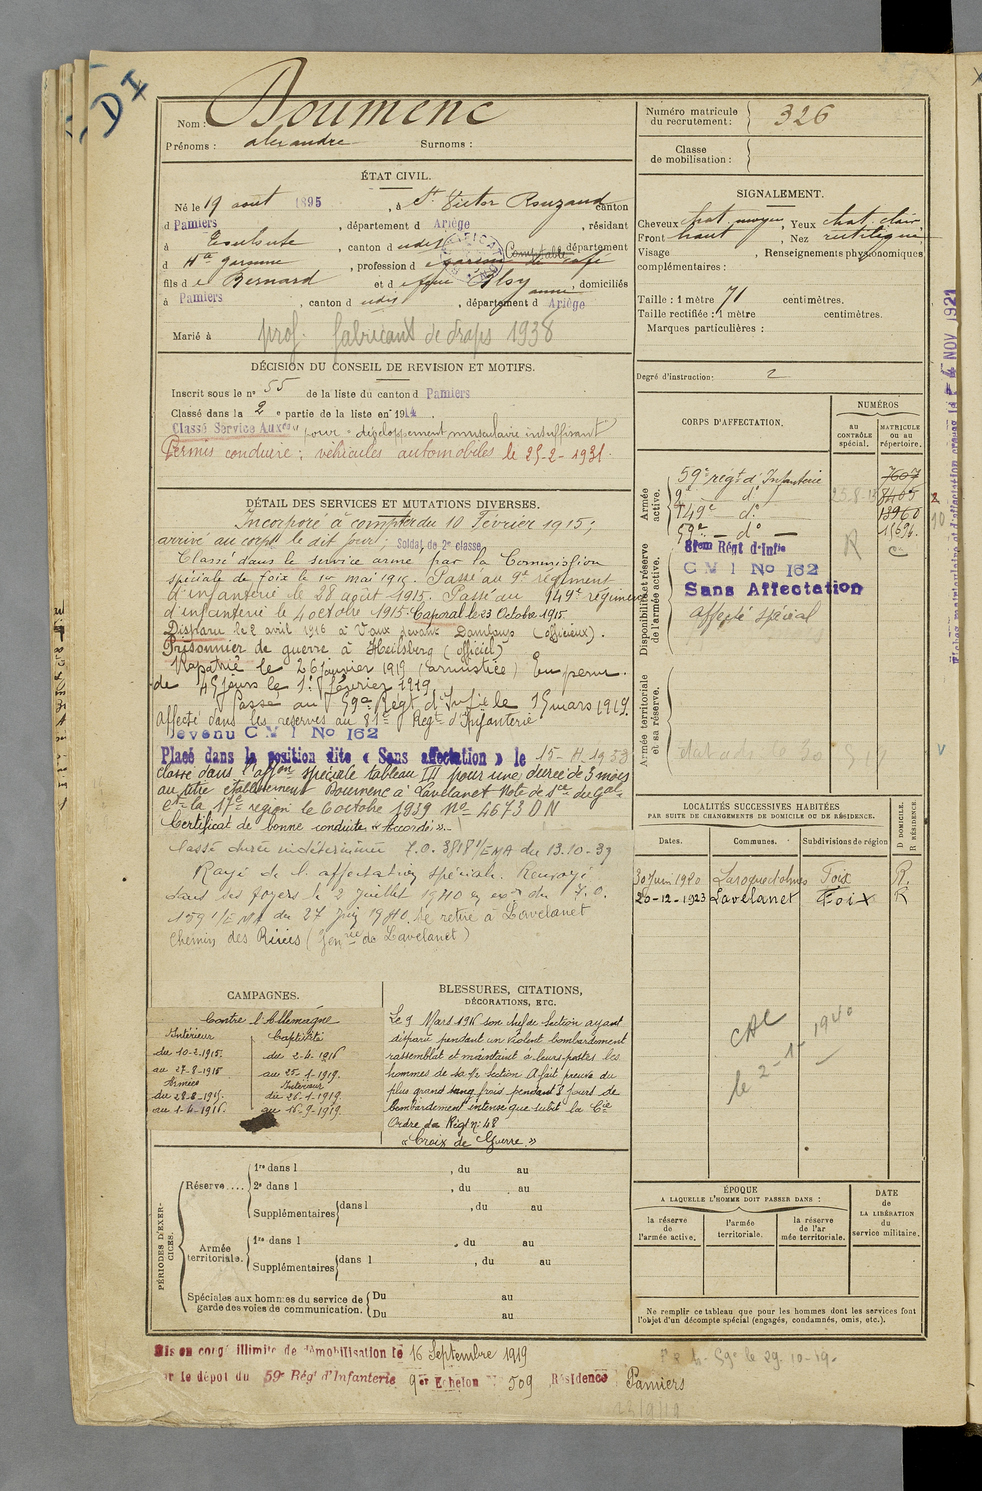 DI
Nom : Doumenc
Prénoms : alexandre Surnoms :
Numéro matricule
du recrutement : 326
Classe
de mobilisation :
ÉTAT CIVIL.
Né le 19 aout 1895, à St Victor Rouzaud canton
d Pamiers, département d Ariège, résidant
à Toulouse, canton d udit, département
d Hte garonne, profession d garçon de café Comptable
fils d e Bernard et d e feue Bloy anne, domiciliés
à Pamiers, canton d udit, département d Ariège
Marié à
prof. fabricant de draps 1938
SIGNALEMENT.
Cheveux chat. moyen, Yeux chat. clair
Front haut, Nez rectiligne
Visage , Renseignements physionomiques
complémentaires :
Taille : 1 mètre 71 centimètres.
Taille rectifiée : 1 mètre centimètres.
Marques particulières :
Degré d'instruction : 2
DÉCISION DU CONSEIL DE REVISION ET MOTIFS.
Inscrit sous le no 55 de la liste du canton d Pamiers
Classé dans la 2 e partie de la liste en 1914.
Classé Service Auxre pour développement musculaire insuffisant
Permis conduire : véhicules automobiles le 25-2-1931.
DÉTAIL DES SERVICES ET MUTATIONS DIVERSES.
Incorporé à compter du 10 Février 1915 ;
arrivé au corps le dit jour ; Soldat de 2e classe
Classé dans le service armé par la Commission
spéciale de foix le 1er mai 1915. Passé au 9e régiment
d'infanterie le 28 août 1915. Passé au 149e régiment
d'infanterie le 4 octobre 1915. Caporal le 23 Octobre 1915.
Disparu le 2 avril 1916 à Vaux devant Damloup (officieux).
Prisonnier de guerre à Heilsberg (officiel)
Rapatrié le 26 janvier 1919 (armistice) En perm.
de 45 jours le 1er février 1919.
Passé au 59e Régt d'Infie le 15 mars 1919.
Affecté dans les réserves au 81e Régt d'Infanterie
devenu C M I No 162
Placé dans la position dite « Sans affectation » le 15-4-1953
classé dans l'affon spéciale tableau III pour une durée de 3 mois
au titre établissement Doumenc à Lavelanet Note de sce du Gal
Ct la 17e région le 6 octobre 1939 No 4673 DN
Certificat de bonne conduite « Accordé ».
Classé durée indéterminée I.O. 3818 1/EMA du 13-10-39
Rayé de l'affectation spéciale. Renvoyé
dans ses foyers le 2 Juillet 1940 en exon du I.O.
1591/EMA du 27 Juin 1940. Se retire à Lavelanet
Chemin des Rivies (Genrie de Lavelanet)
CORPS D'AFFECTATION.
NUMÉROS
AU CONTRÔLE spécial.
MATRICULE OU AU répertoire.
Armée active.
59e régt d'Infanterie 7607
9e — do — 8405
149e do — 13960
59e — do — 15694
Disponibilité et réserve de l'armée active.
81em Régt d'Infie R
C M I No 162
Sans Affectation
affecté spécial
Armée territoriale et sa réserve.
LOCALITÉS SUCCESSIVES HABITÉES
PAR SUITE DE CHANGEMENTS DE DOMICILE OU DE RÉSIDENCE.
Dates. Communes. Subdivisions de région D DOMICILE. R RÉSIDENCE.
30 Juin 1920 Laroque d'olmes Foix R.
26-12-1923 Lavelanet Foix R
CAL
le 2-1-1940
CAMPAGNES.
Contre l'Allemagne
Intérieur
du 10-2-1915.
au 27-8-1915
Armées
du 28-8-1915.
au 1-4-1916.
Captivité
du 2-4-1916
au 25-1-1919.
Intérieur
du 26-1-1919.
au 16-9-1919.
BLESSURES, CITATIONS,
DÉCORATIONS, ETC.
Le 9 Mars 1916 son chef de Section ayant
disparu pendant un violent bombardement
rassemblat et maintint à leurs postes les
hommes de sa 1/2 section A fait preuve du
plus grand sang froid pendant 3 jours de
bombardement intense que subit la Cie
Ordre du Régt No 48
« Croix de Guerre. »
PÉRIODES D'EXERCICES.
Réserve .... 1re dans l , du au
2e dans l , du au
Supplémentaires dans l , du au
Armée territoriale. 1re dans l , du au
Supplémentaires dans l , du au
Spéciales aux hommes du service de garde des voies de communication. Du au
Du au
ÉPOQUE
A LAQUELLE L'HOMME DOIT PASSER DANS :
la réserve de l'armée active.
l'armée territoriale.
la réserve de l'armée territoriale.
DATE de LA LIBÉRATION du service militaire.
Ne remplir ce tableau que pour les hommes dont les services font
l'objet d'un décompte spécial (engagés, condamnés, omis, etc.).
Mis en congé illimité de démobilisation le 16 Septembre 1919
par le dépôt du 59e Régt d'Infanterie 9er Echelon No 509 Résidence : Pamiers